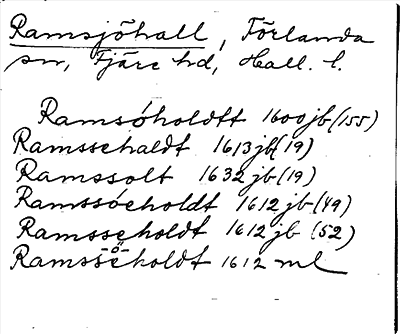 Ramsjöhall, Förlanda
sn, Fjäre hd, Hall. l.
Ramsóholdtt 1600 jb (155)
Ramssehaldt 1613 jb (19)
Ramssolt 1632 jb (19)
Ramssóeholdt 1612 jb (49)
Ramsseholdt 1612 jb (52)
-ö-
Ramsseholdt 1612 ml